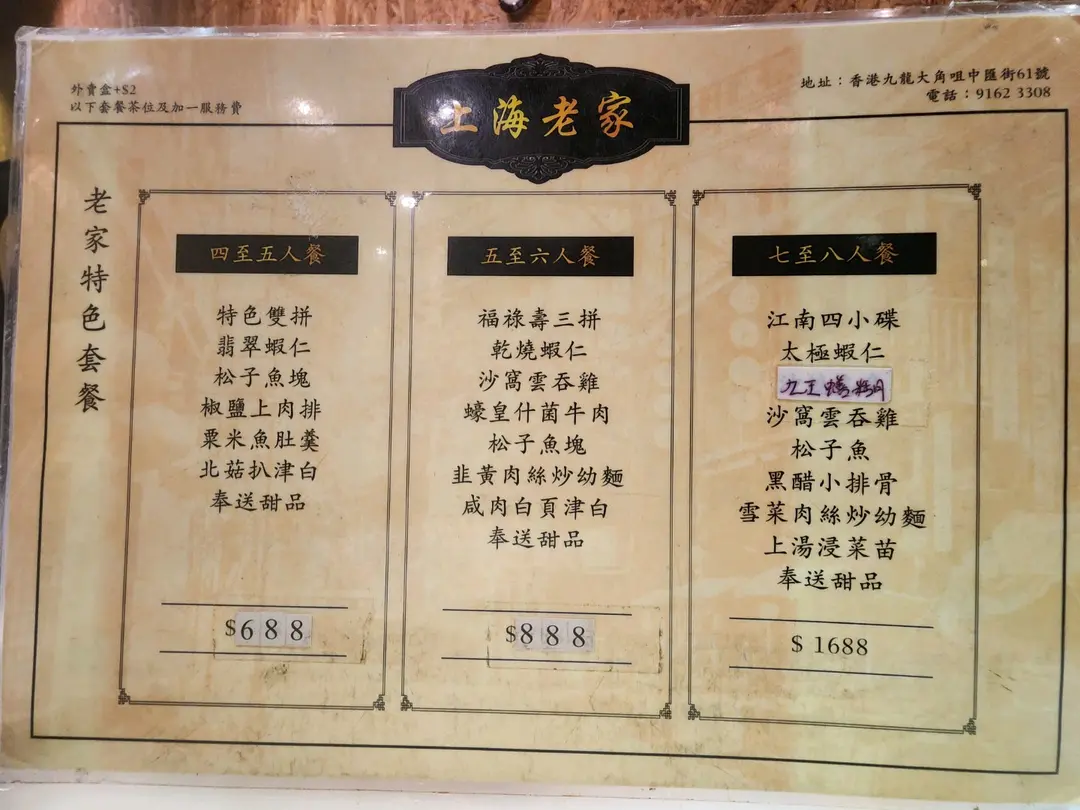 外賣盒+$2
以下套餐茶位及加一服務費
上海老家
地址：香港九龍大角咀中匯街61號
電話：9162 3308
老家特色套餐
四至五人餐
特色雙拼
翡翠蝦仁
松子魚塊
椒鹽上肉排
粟米魚肚羹
北菇扒津白
奉送甜品
$688
五至六人餐
福祿壽三拼
乾燒蝦仁
沙窩雲吞雞
蠔皇什菌牛肉
松子魚塊
韭黃肉絲炒幼麵
咸肉白頁津白
奉送甜品
$888
七至八人餐
江南四小碟
太極蝦仁
沙窩雲吞雞
松子魚
黑醋小排骨
雪菜肉絲炒幼麵
上湯浸菜苗
奉送甜品
$ 1688